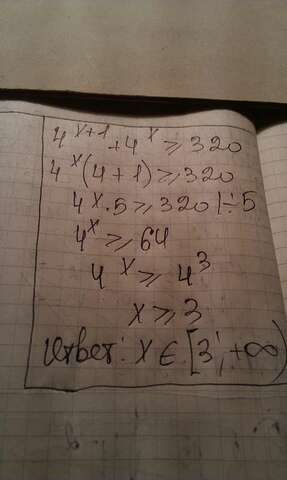 4^{x+1} + 4^x ⩾ 320
4^x(4+1) ⩾ 320
4^x · 5 ⩾ 320 |÷5
4^x ⩾ 64
4^x ⩾ 4^3
x ⩾ 3
Ответ: x ∈ [3; +∞)